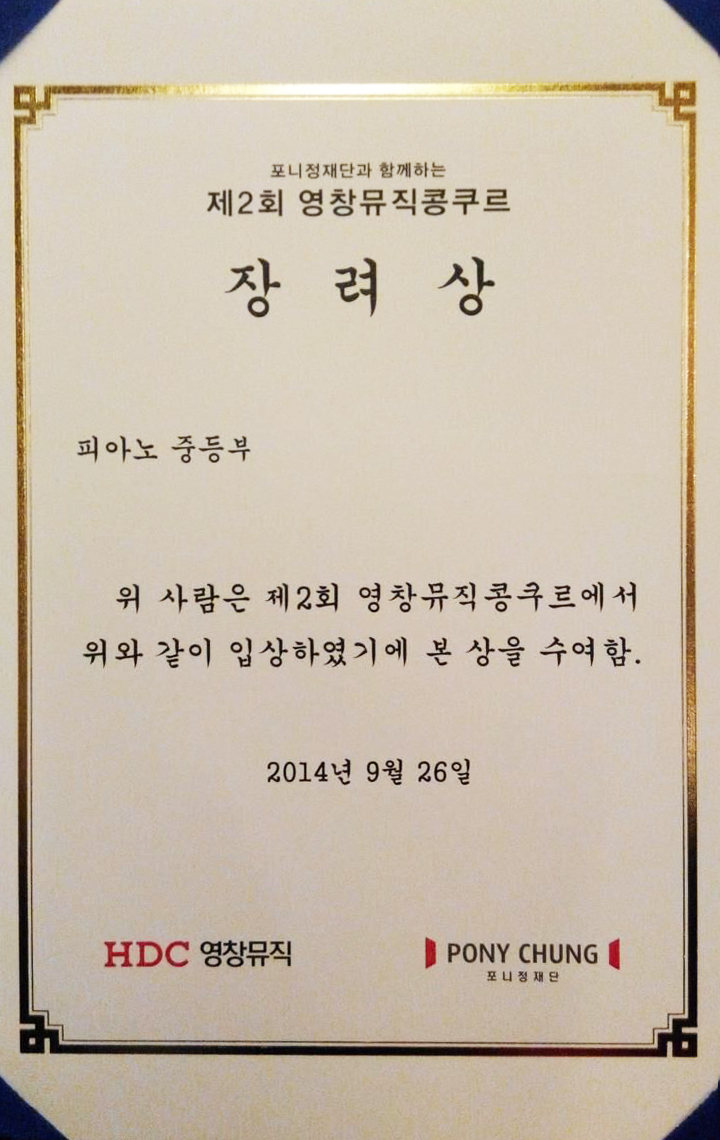 포니정재단과 함께하는
제2회 영창뮤직콩쿠르
장 려 상
피아노 중등부
위 사람은 제2회 영창뮤직콩쿠르에서
위와 같이 입상하였기에 본 상을 수여함.
2014년 9월 26일
HDC 영창뮤직
PONY CHUNG
포니정재단